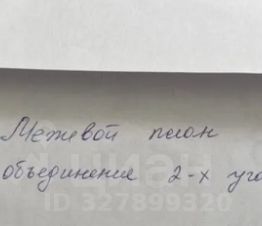 Межевой план
объединения 2-х уча
ID 327899320